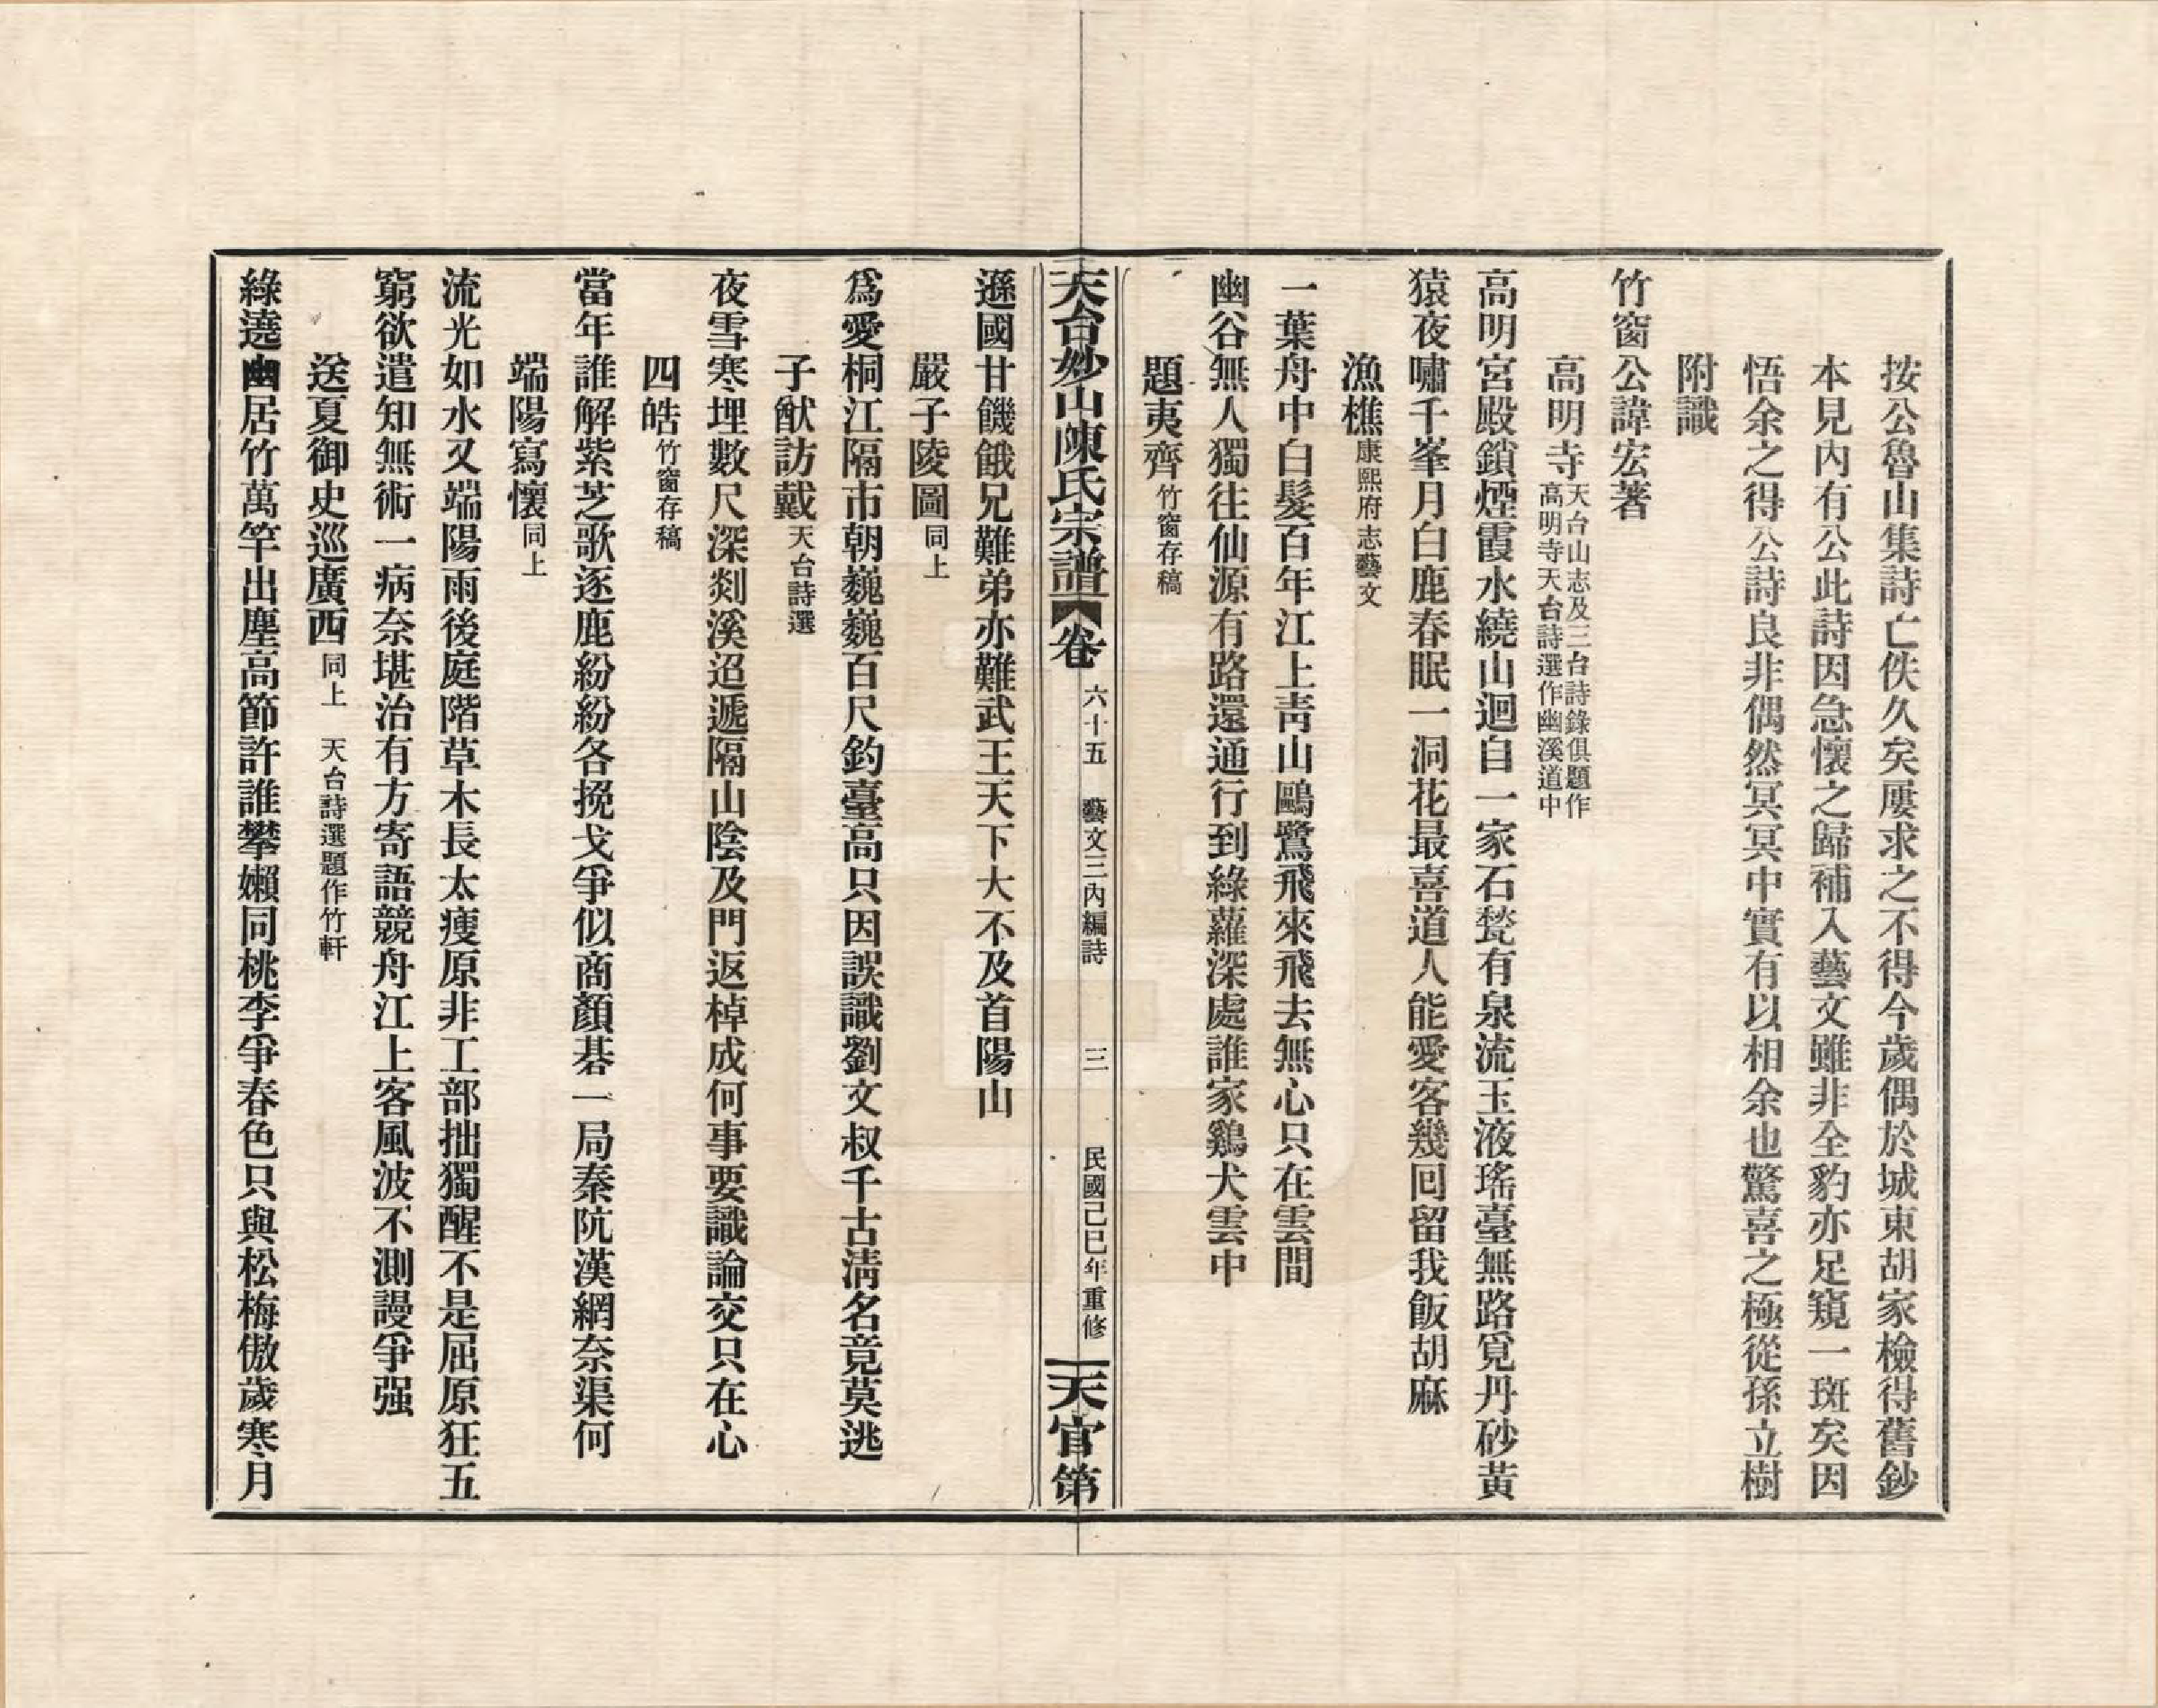 按公魯山集詩亡佚久矣屢求之不得今歲偶於城東胡家檢得舊鈔
本見內有公此詩因急懷之歸補入藝文雖非全豹亦足窺一斑矣因
悟余之得公詩良非偶然冥冥中實有以相余也驚喜之極從孫立樹
附識
竹窗公諱宏著
高明寺天台山志及三台詩錄俱題作
高明寺天台詩選作幽溪道中
高明宮殿鎖煙霞水繞山迴自一家石甃有泉流玉液瑤臺無路覓丹砂黃
猿夜嘯千峯月白鹿春眠一洞花最喜道人能愛客幾回留我飯胡麻
漁樵康熙府志藝文
一葉舟中白髮百年江上靑山鷗鷺飛來飛去無心只在雲間
幽谷無人獨往仙源有路還通行到綠蘿深處誰家鷄犬雲中
題夷齊竹窗存稿
天台妙山陳氏宗譜 卷 六十五 藝文三內編詩 三 民國己巳年重修 天官第
遜國甘饑餓兄難弟亦難武王天下大不及首陽山
嚴子陵圖同上
爲愛桐江隔市朝巍巍百尺釣臺高只因誤識劉文叔千古淸名竟莫逃
子猷訪戴天台詩選
夜雪寒埋數尺深剡溪迢遞隔山陰及門返棹成何事要識論交只在心
四皓竹窗存稿
當年誰解紫芝歌逐鹿紛紛各挽戈爭似商顏碁一局秦阬漢網奈渠何
端陽寫懷同上
流光如水又端陽雨後庭階草木長太瘦原非工部拙獨醒不是屈原狂五
窮欲遣知無術一病奈堪治有方寄語競舟江上客風波不測謾爭强
送夏御史巡廣西同上 天台詩選題作竹軒
綠遶幽居竹萬竿出塵高節許誰攀嬾同桃李爭春色只與松梅傲歲寒月